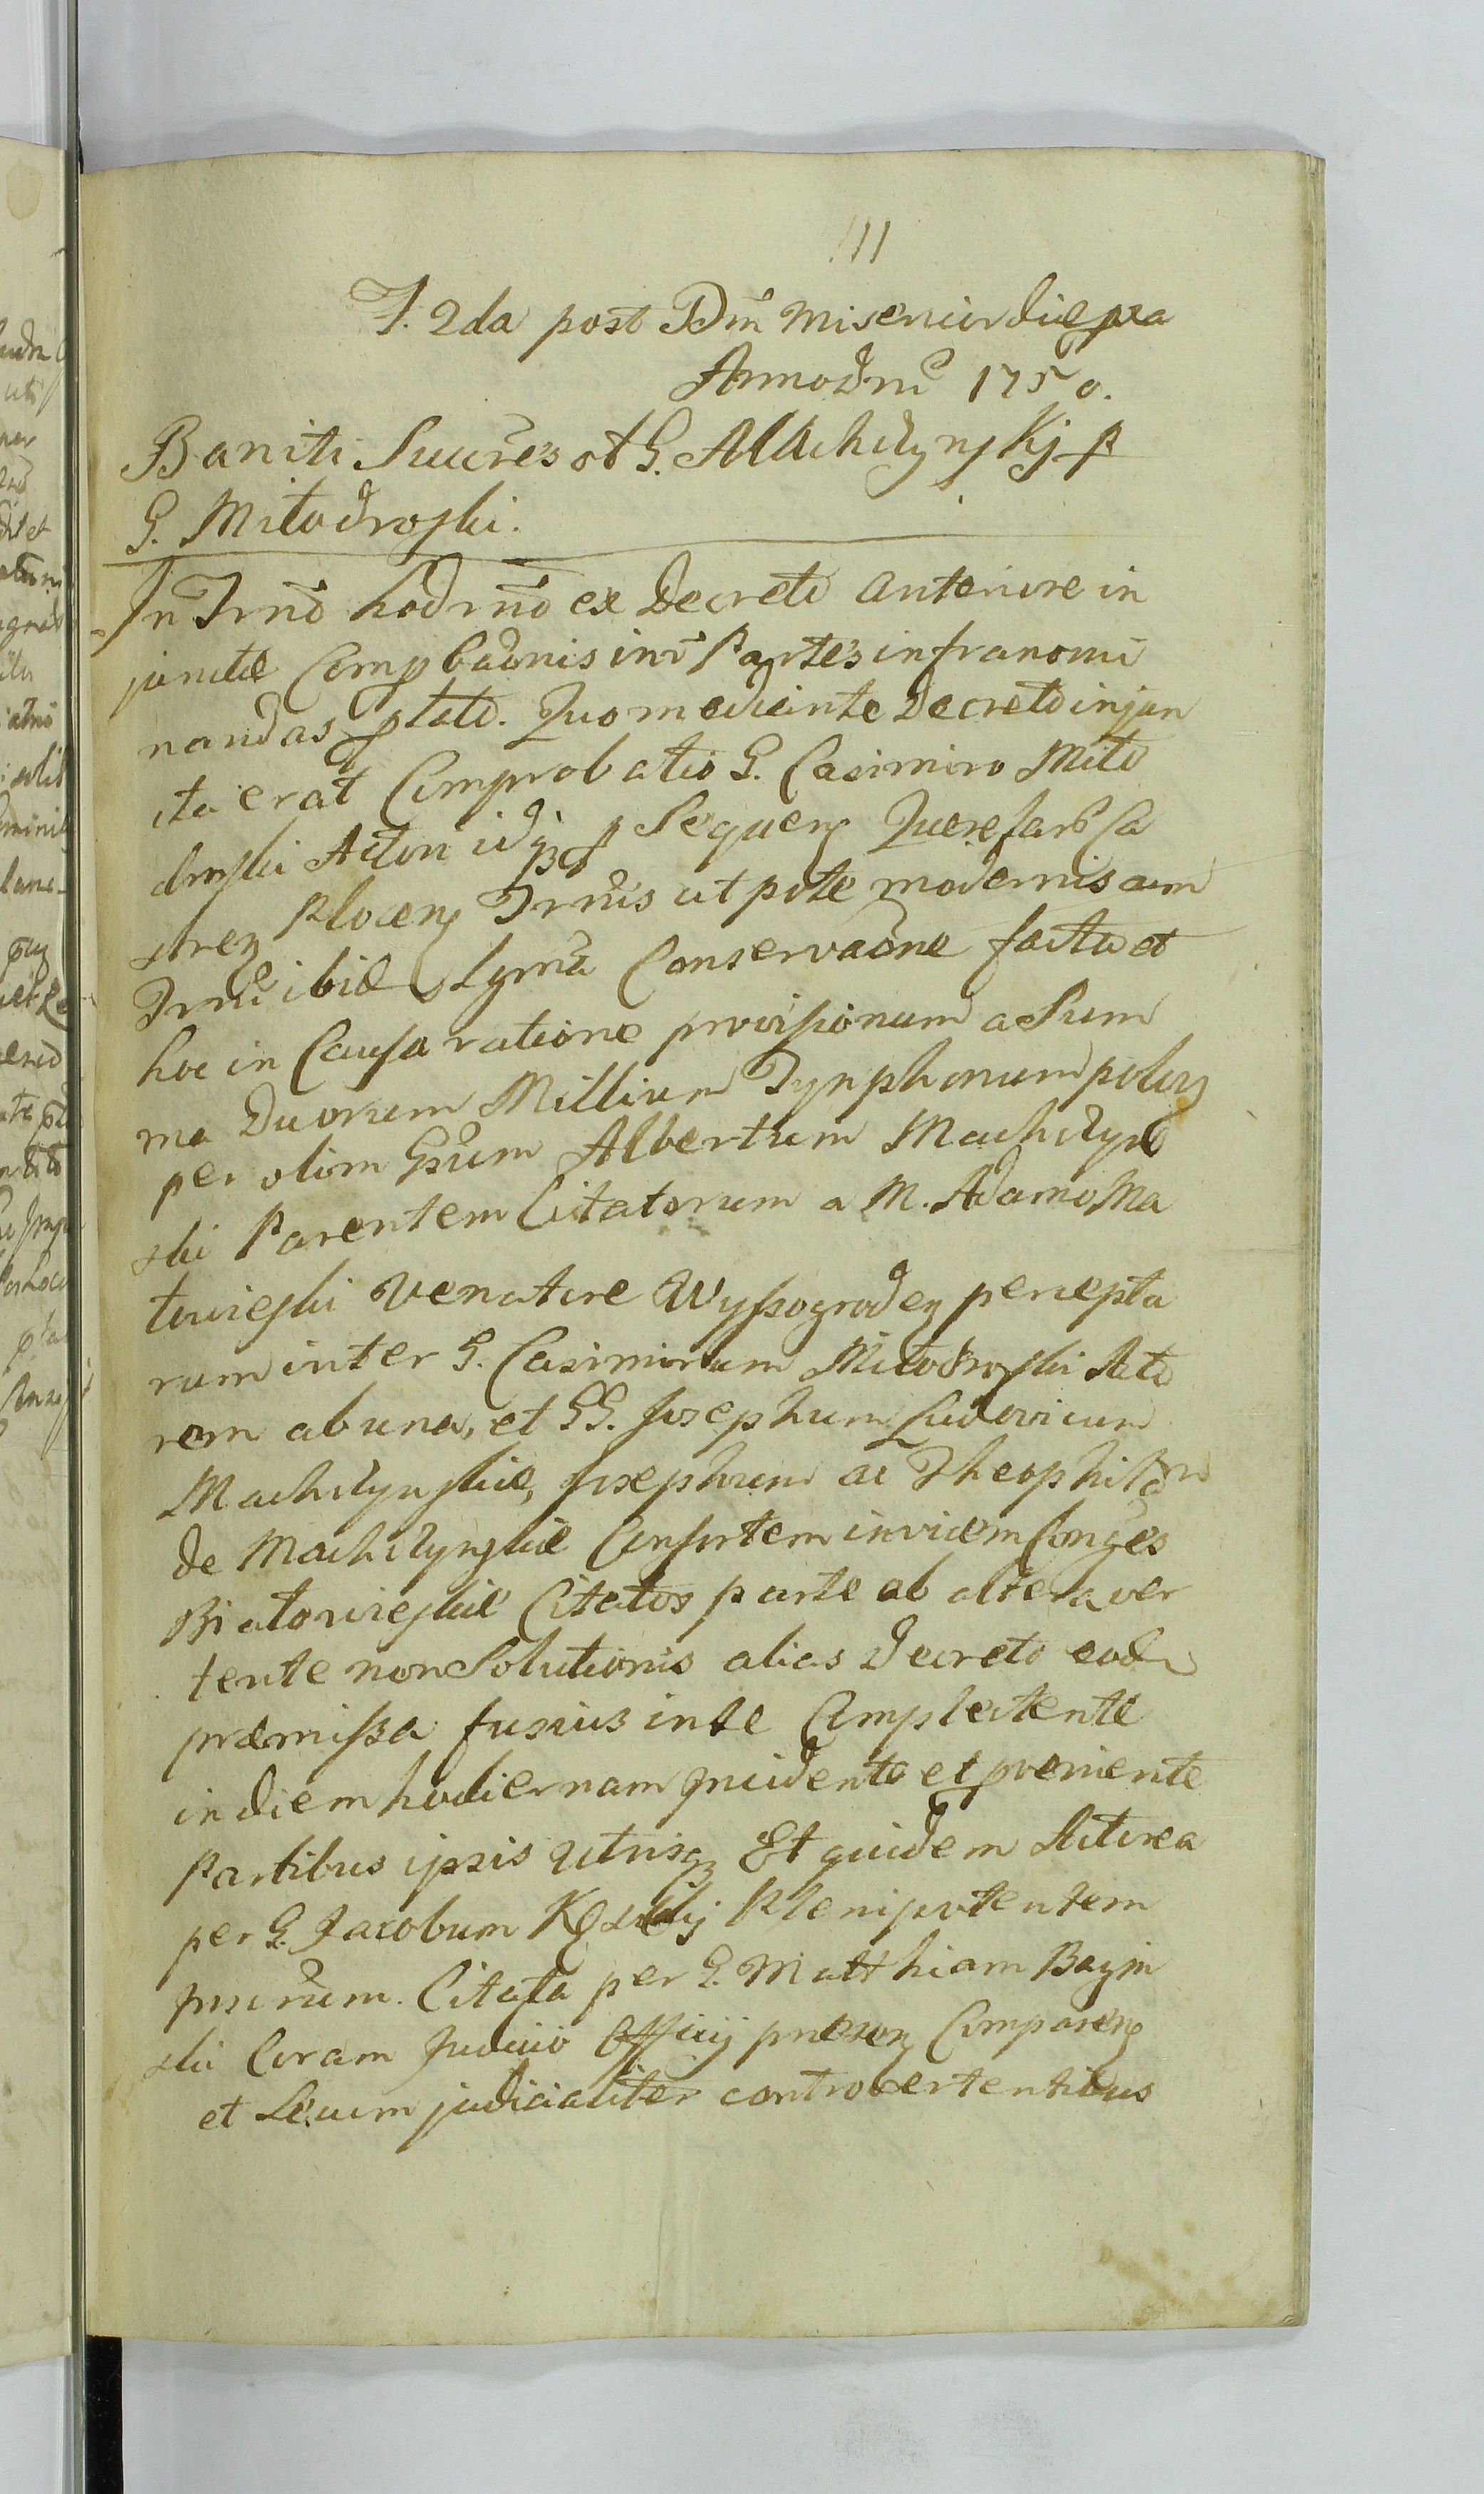 111
F. 2da post Dm̃ Misericordiæ pxa
Anno Dñi 1750.
Baniti Succres ol G. Machczynskj p
G. Miłodroski.
In Trnõ hodrnõ ex Decreto anteriore in
junctæ Compbaõnis int̃ Partes infranomi
nandas ptato. Quo mediante Decreto injun
cta erat Comprobatio G. Casimiro Miło
droski Actori idqꝫ p Sequen Querelar Ca
stren Plocen Trnũs utpote modernis cum
Trnũ ibid Lgmã Conservaõne facta et
hoc in Causa ratione provisionum a Sum
ma Duorum Millium Tynphonum polon
per olim Gsũm Albertum Machczyn
ski Parentem Citatorum a M. Adamo Ma
kowieski Venatore Wyssogroden percepta
rum inter G. Casimirum Miłodroski Acto
rem ab una, et GG. Josephum Ludovicum
Machczynskie, Josephum ac Theophilam
de Machczynskie Consortem invicem Conges
Białowieskie Citatos parte ab altera ver
tente non Solutionis alias Decreto eod
præmissa fusius in se Complectente
in diem hodiernam Incidente et pveniente
Partibus ipsis utrisqꝫ Et quidem Actorea
per G. Jacobum Kęskij Plenipotentem
Citata per G. Matthiam Bagin
ski Coram Judicio Officij præsen Comparen
et Secum judicialiter controvertentibus